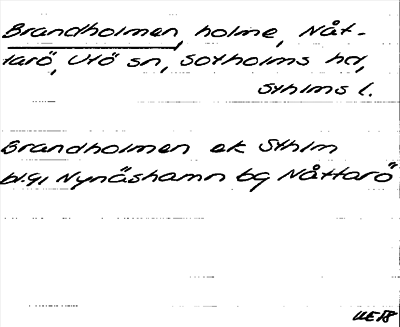 Brandholmen, holme, Nåt-
tarö, Utö sn, Sotholms hd,
Sthlms l.
Brandholmen ek Sthlm
bl.91 Nynäshamn bg Nåttarö